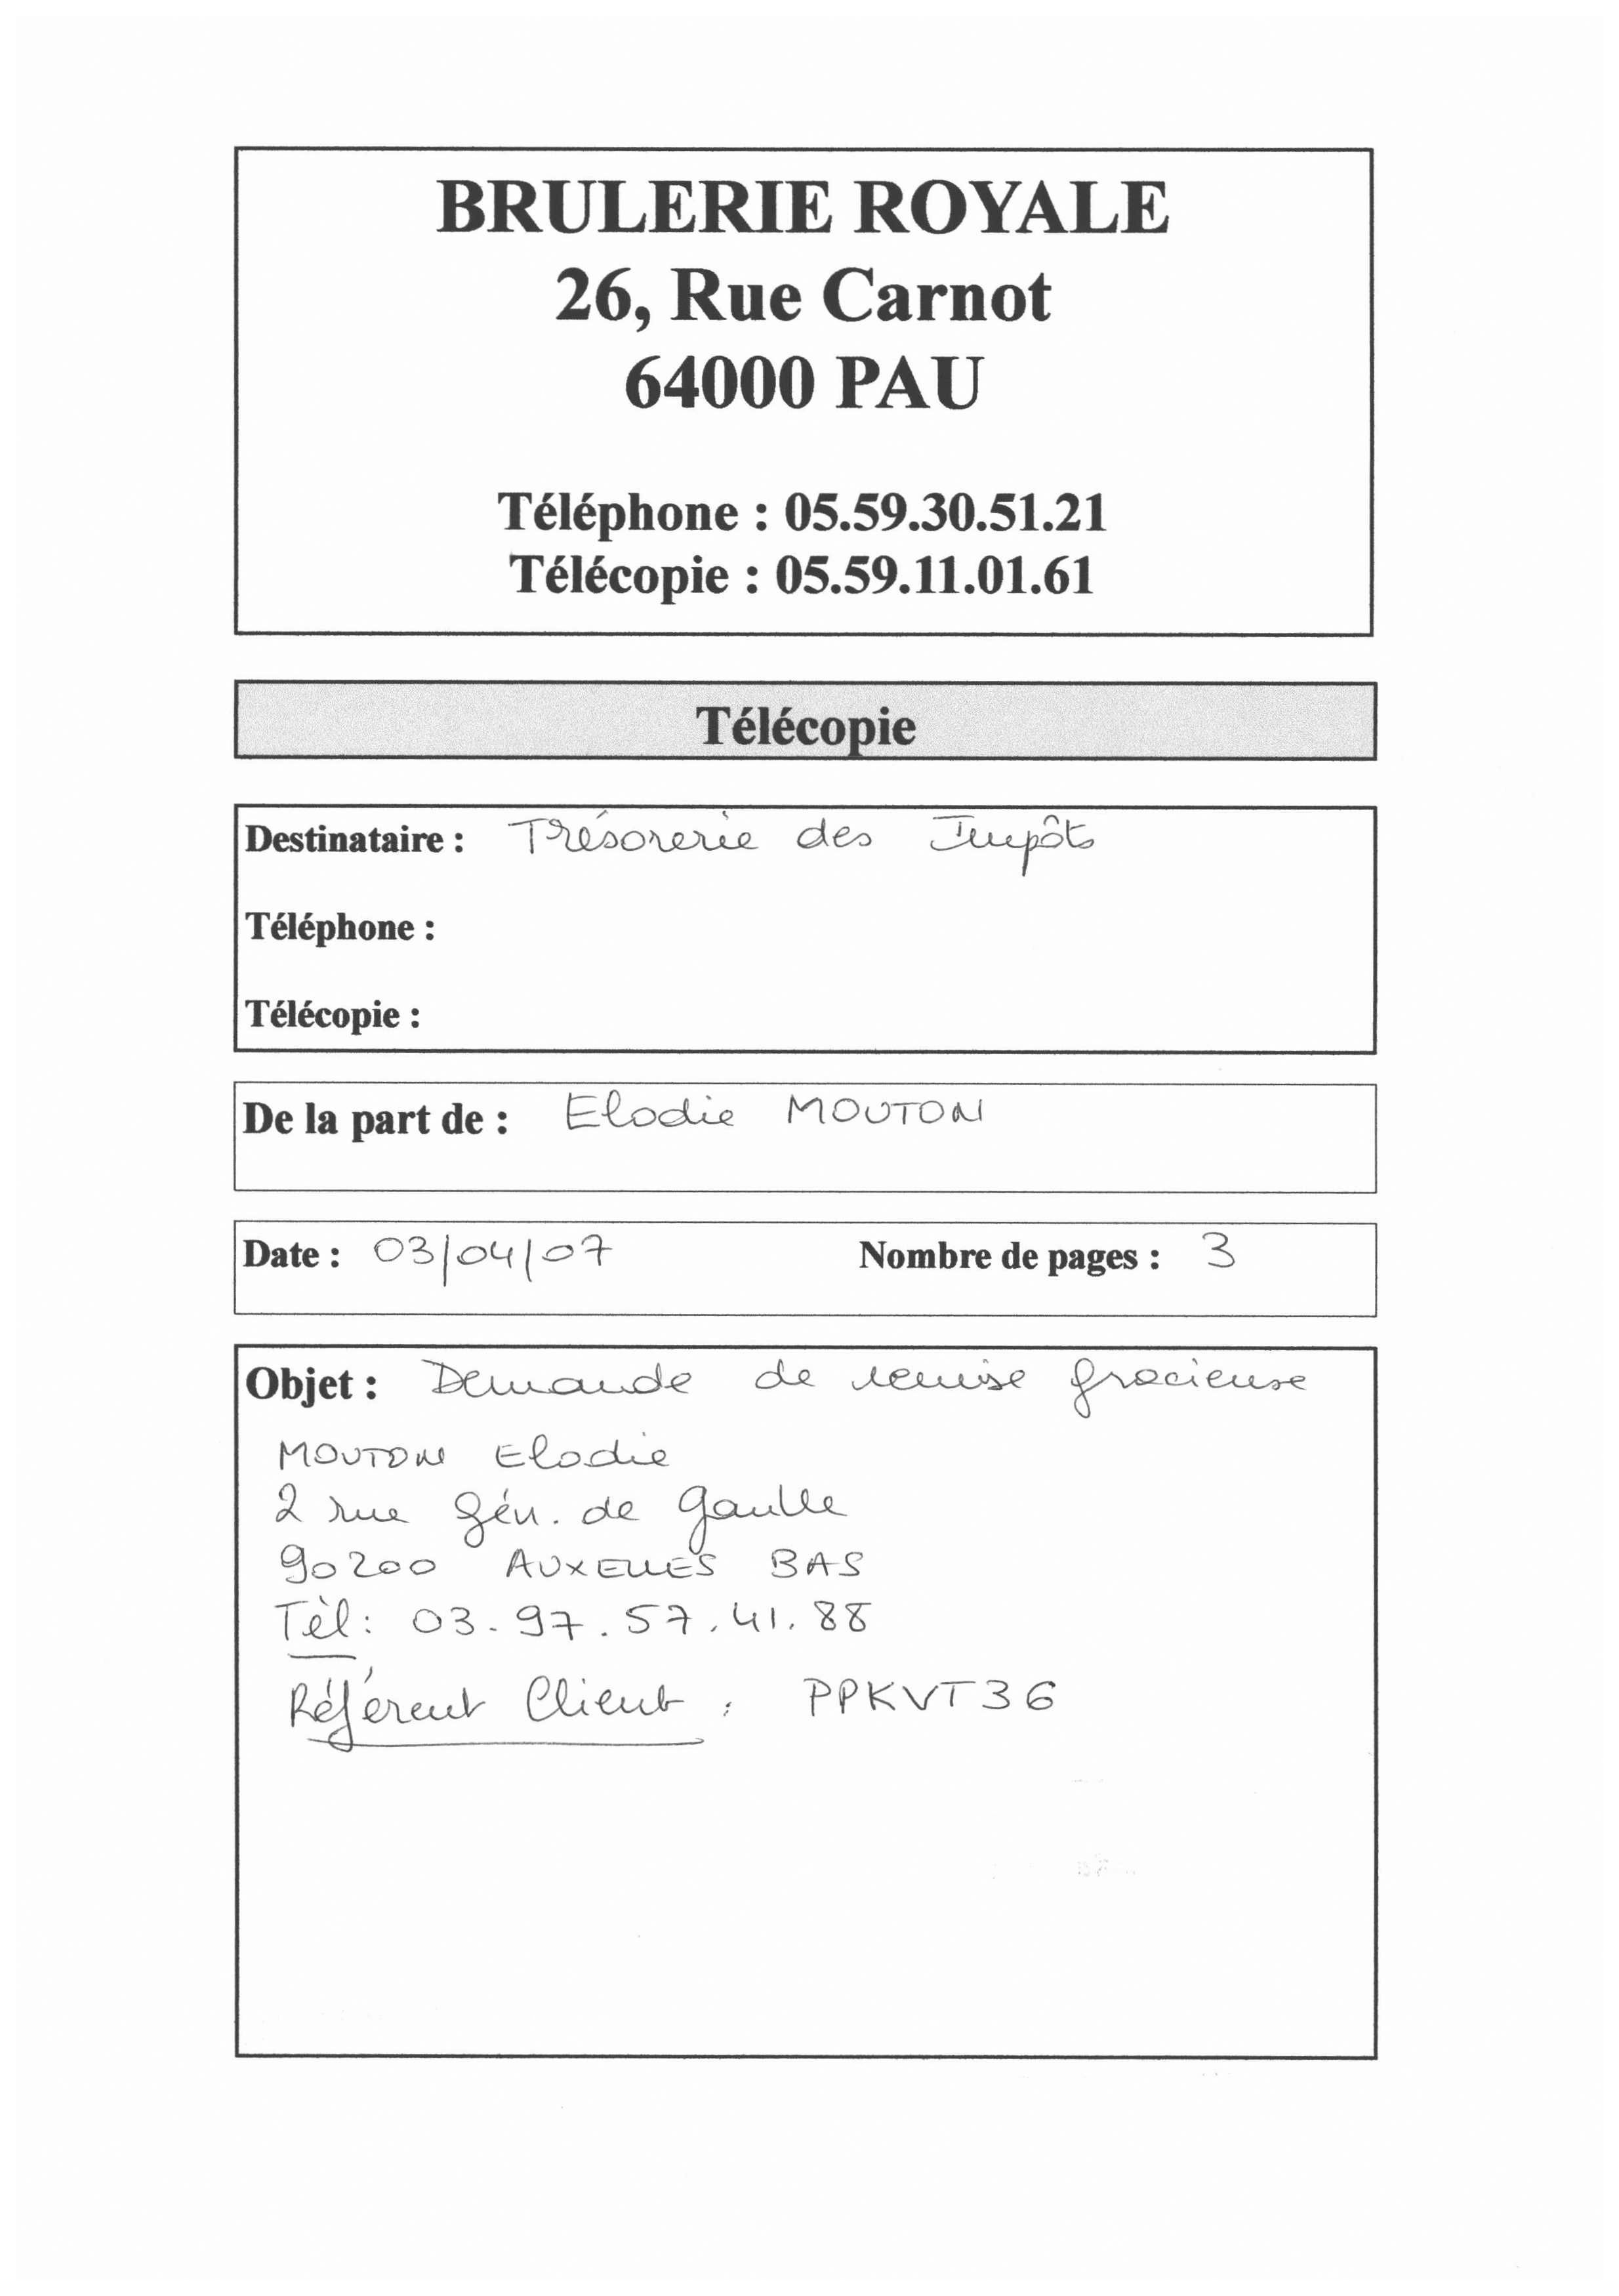 BRULERIE ROYALE
26, Rue Carnot
64000 PAU
Téléphone : 05.59.30.51.21
Télécopie : 05.59.11.01.61
Télécopie
Destinataire : Trésorerie des Impôts
Téléphone :
Télécopie :
De la part de : Elodie MOUTON
Date : 03/04/07 Nombre de pages : 3
Objet : Demande de remise gracieuse
MOUTON Elodie
2 rue Gén. de Gaulle
90200 AUXELLES BAS
Tèl: 03.97.57.41.88
Référent Client : PPKVT36